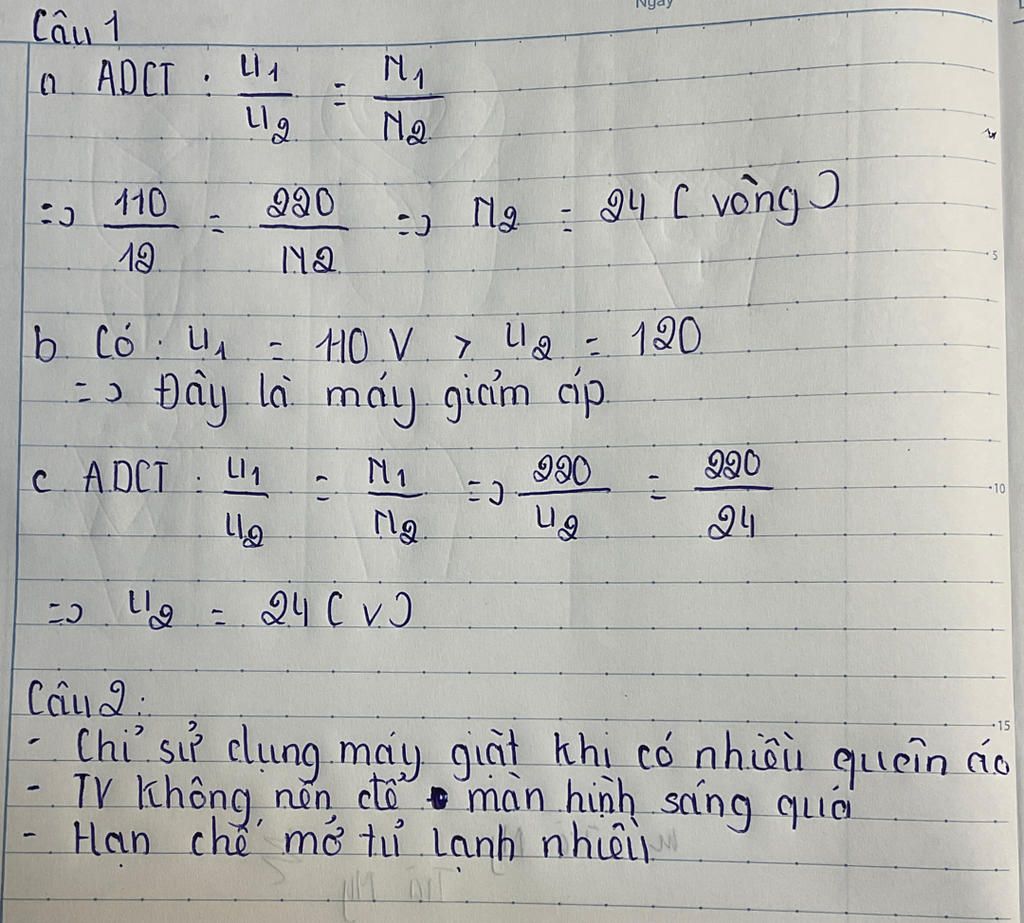 Ngày
Câu 1
a ADCT : U1/U2 = N1/N2
=> 110/12 = 220/N2 => N2 = 24 (vòng)
b. Có : U1 = 110 V > U2 = 120
=> Đây là máy giảm áp
c ADCT : U1/U2 = N1/N2 => 220/U2 = 220/24
=> U2 = 24 (V)
Câu 2:
- Chỉ sử dụng máy giặt khi có nhiều quần áo
- TV không nên để màn hình sáng quá
- Hạn chế mở tủ lạnh nhiều
5
10
15